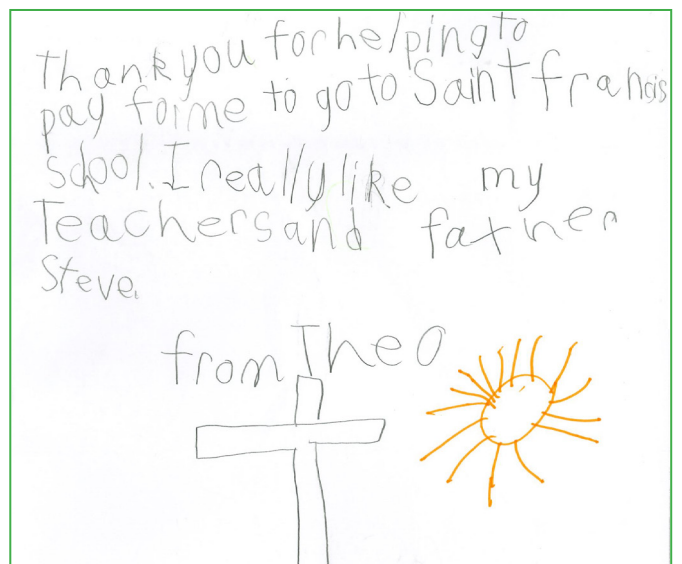 Thank you for helping to
pay for me to go to Saint francis
school. I really like my
Teachers and father
Steve.
from Theo